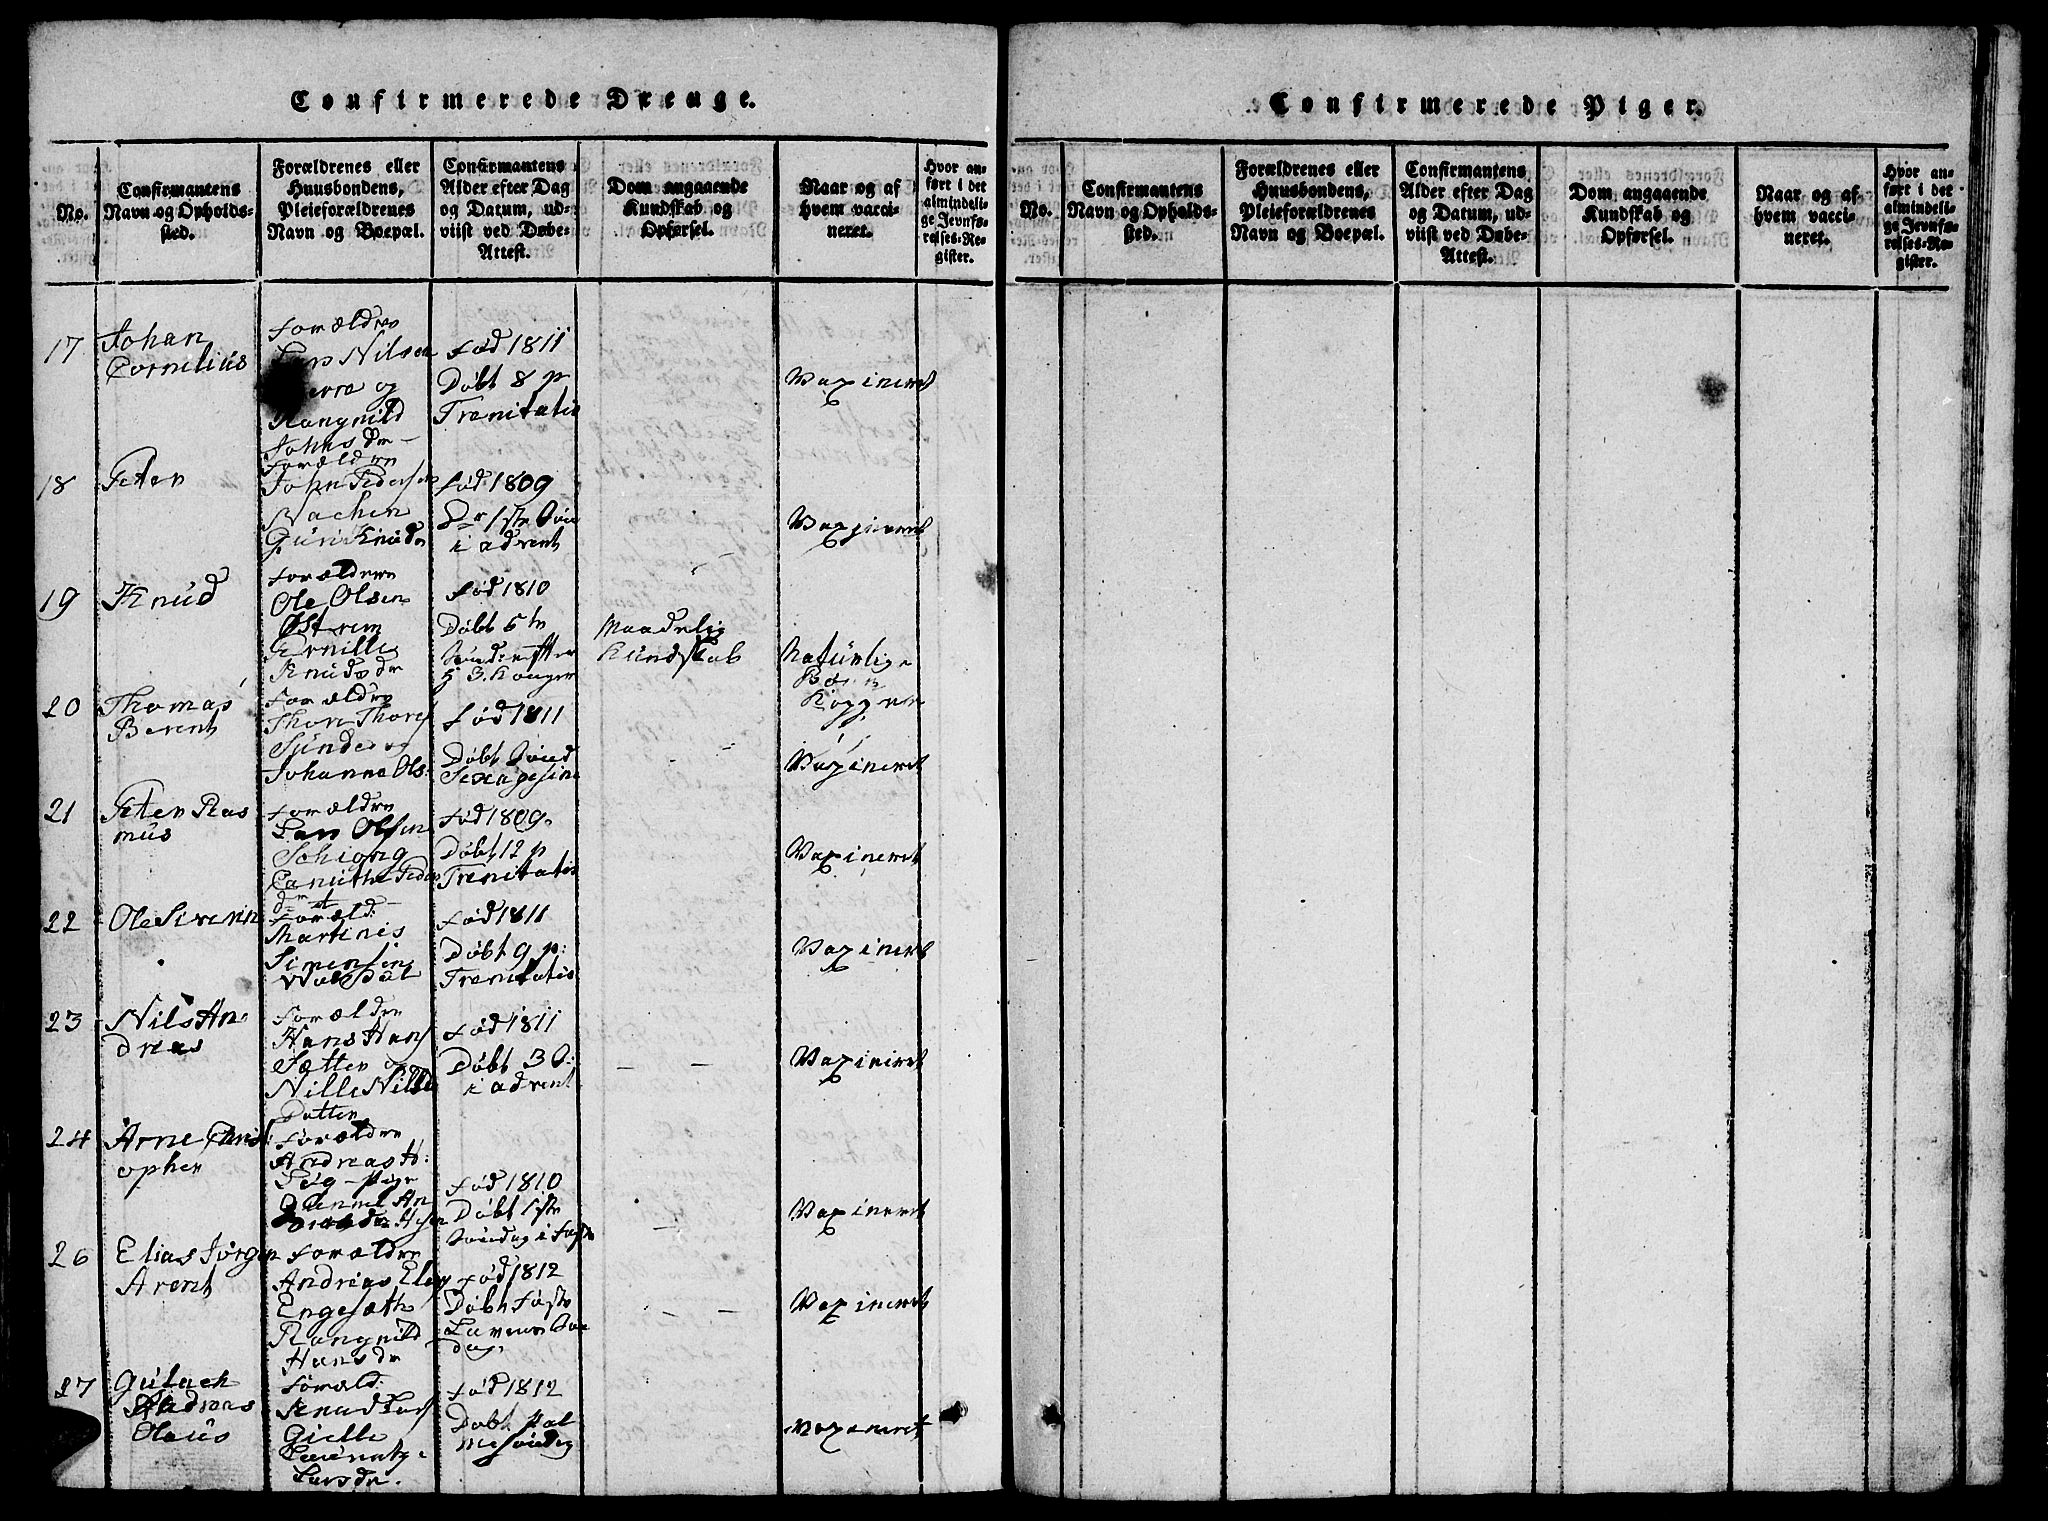 Confirmerede Drenge.
No.
Confirmantens
Navn og Opholds-
sted.
Forældrenes eller
Huusbondens,
Pleieforældrenes
Navn og Boepæl.
Confirmantens
Alder efter Dag
og Datum, ud-
viist ved Døbe-
Attest.
Dom angaaende
Kundskab og
Opførsel.
Naar og af
hvem vacci-
neret.
Hvor an-
ført i det
almindeli-
ge Jevnfø-
relses-Re-
gister.
17
Johan
Cornelius
Forældre
Lars Nilsen
og
Rangnild
Johns dr
Fød 1811
Døbt 8 p
Trenitatis
Vaxineret
18
Peter
Forældre
John Pedersen
Nachen
Guri Knuds
Fød 1809
1ste
i advent
Vaxineret
19
Knud
Forældrene
Ole Olsen
Østrem
Pernille
Knuds dr
Fød 1810
Døbt 5te
Søndag efter
H 3. Konger
Maadelig
Kundskab
Naturlige
Børne
Kopper
20
Thomas
Berent
Forældre
Thore Thores
Sunde og
Johanne Ols:
Fød 1811
Døbt Sønd
Sexagesima
Vaxineret
21
Peter Ras
mus
Forældre
Lars Olsen
Schiong
Canuthe Peders
dr
Fød 1809.
Døbt 12 p
Trenitatis
Vaxineret
22
Ole Siverin
Foræld:
Martinis
Simensen
Fød 1811
Døbt 9 p:
Trenitatis
Vaxineret
23
Nils An-
dreas
Forældre
Hans Hans
Sætter og
Nille Nilsd
Datter
Fød 1811
Døbt 3 S:
i advent
Vaxineret
24
Arne Christ
opher
Forældre
Andreas H:
Fød 1810
Døbt 1ste
Søndag i Faste
Vaxineret
26
Elias Jørgen
Arent
Forældre
Andreas Elias
Engesæth
Rangnild
Hans dr
Fød 1812
Døbt Faste
Lavens Søn
dag.
Vaxineret
27
Gulach
Andreas
Olaus
Foræld.
Knud Lars
Gielle
Lars dr.
Fød 1812
Døbt Pal
me Søndag
Vaxeneret
Confirmerede Piger.
No.
Confirmantens
Navn og Opholds-
sted.
Forældrenes eller
Huusbondens,
Pleieforældrenes
Navn og Boepæl.
Confirmantens
Alder efter Dag
og Datum, ud-
viist ved Døbe-
Attest.
Dom angaaende
Kundskab og
Opførsel.
Naar og af
hvem vacci-
neret.
Hvor an-
ført i det
almindeli-
ge Jevnfø-
relses-Re-
gister.